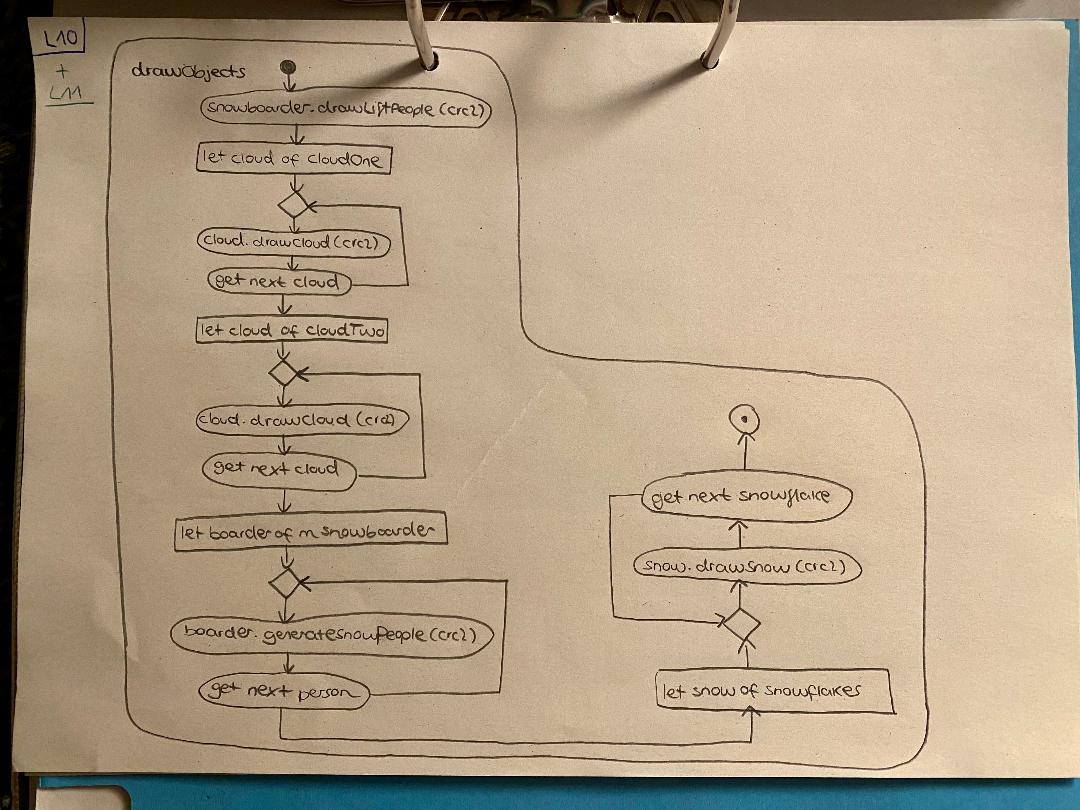 L10
+
L11
drawObjects
snowboarder.drawLiftPeople (crc2)
let cloud of cloudOne
cloud.drawCloud (crc2)
get next cloud
let cloud of cloudTwo
cloud.drawCloud (crc2)
get next cloud
let boarder of m snowboarder
boarder.generateSnowPeople (crc2)
get next person
get next snowflake
snow.drawSnow (crc2)
let snow of snowflakes